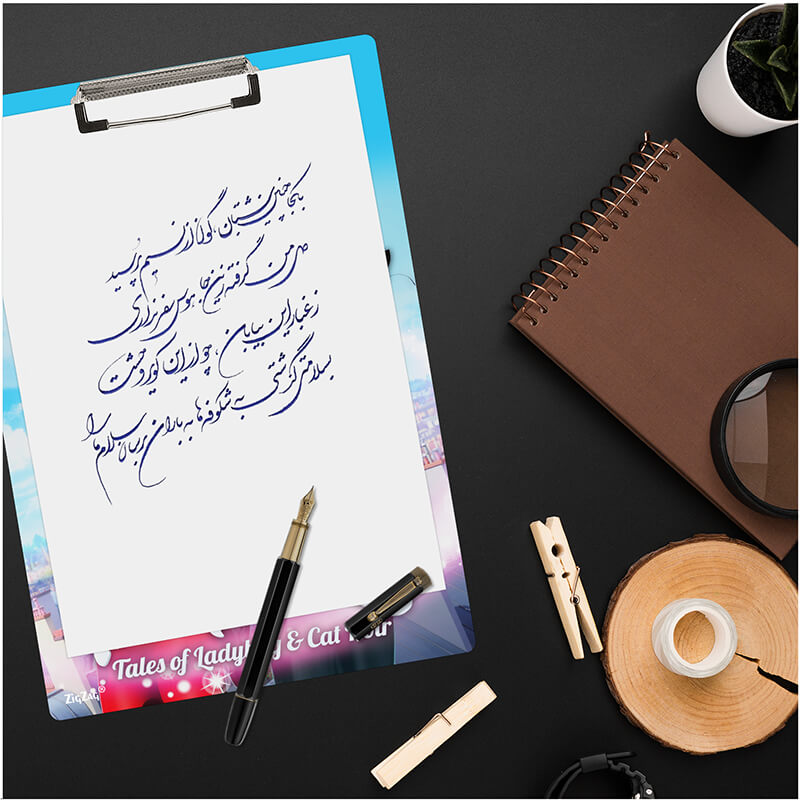 بکجا چنین شتابان، گون از نسیم پرسید
دل من گرفته زین جا هوس سفر نداری
ز غبار این بیابان، چو از این کویر وحشت
بسلامتی گذشتی به شکوفه ها به باران برسان سلام ما را
Tales of Ladybug & Cat Noir
ZIGZAG®